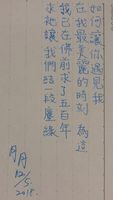 如何讓你遇見我
在我最美麗的時刻 為這
我已在佛前求了五百年
求祂讓我們結一段塵緣
月月
12/5